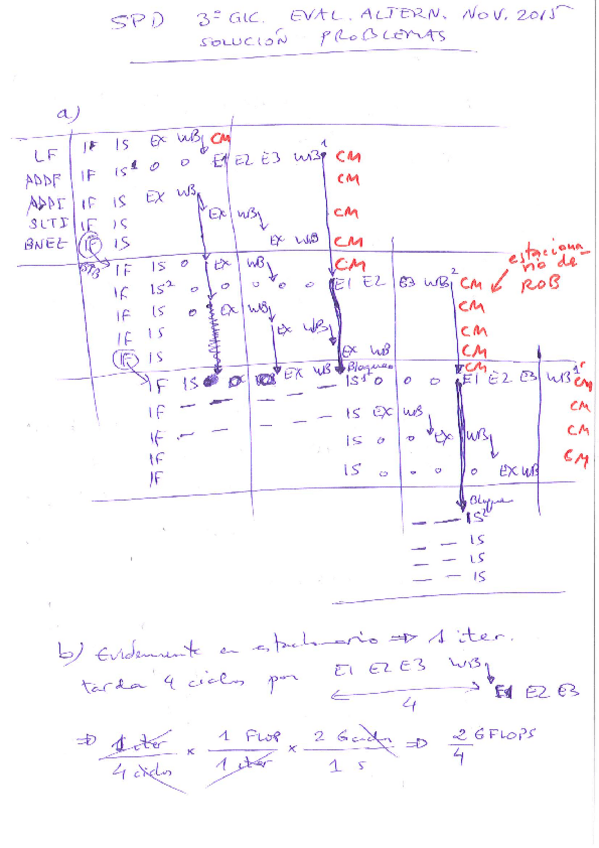 SPD 3º GIC. EVAL. ALTERN. NOV. 2015
SOLUCIÓN PROBLEMAS
a)
LF IF IS EX WB CM
ADDF IF IS¹ 0 0 E1 E2 E3 WB¹ CM
ADDI IF IS EX WB CM
SLTI IF IS EX WB CM
BNEZ IF IS EX WB CM
BTB IF IS 0 EX WB CM
IF IS² 0 0 0 0 0 0 E1 E2 E3 WB² CM
IF IS 0 EX WB CM
IF IS EX WB CM
IF IS EX WB CM
estacionario de ROB
IF IS EX WB Bloqueo IS¹ 0 0 0 E1 E2 E3 WB¹ CM
IF – – – – – IS EX WB CM
IF – – – – – IS 0 EX WB CM
IF IS 0 0 0 0 EX WB CM
IF
Bloqueo
– – IS²
– – IS
– – IS
– – IS
b) Evidentemente en estacionario ⇒ 1 iter.
tarda 4 ciclos por E1 E2 E3 WB
4
E1 E2 E3
⇒ 1 iter / 4 ciclos × 1 FLOP / 1 iter × 2 Gciclos / 1 s ⇒ 2/4 GFLOPS